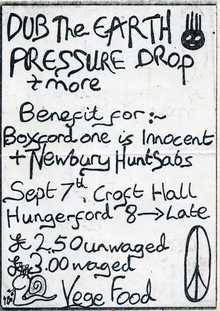 DUB The EARTH
PRESSURE DROP
+ more
Benefit for :~
Boxford one is Innocent
+ Newbury HuntSabs
Sept 7th, Croft Hall
Hungerford 8→Late
£2.50 unwaged
£3.00 waged
Vege Food